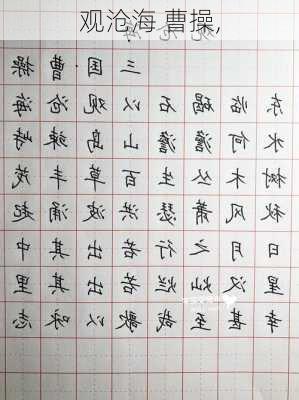 观沧海 曹操,
观沧海
三国·曹操
东临碣石以观沧海
水何澹澹山岛竦峙
树木丛生百草丰茂
秋风萧瑟洪波涌起
日月之行若出其中
星汉灿烂若出其里
幸甚至哉歌以咏志